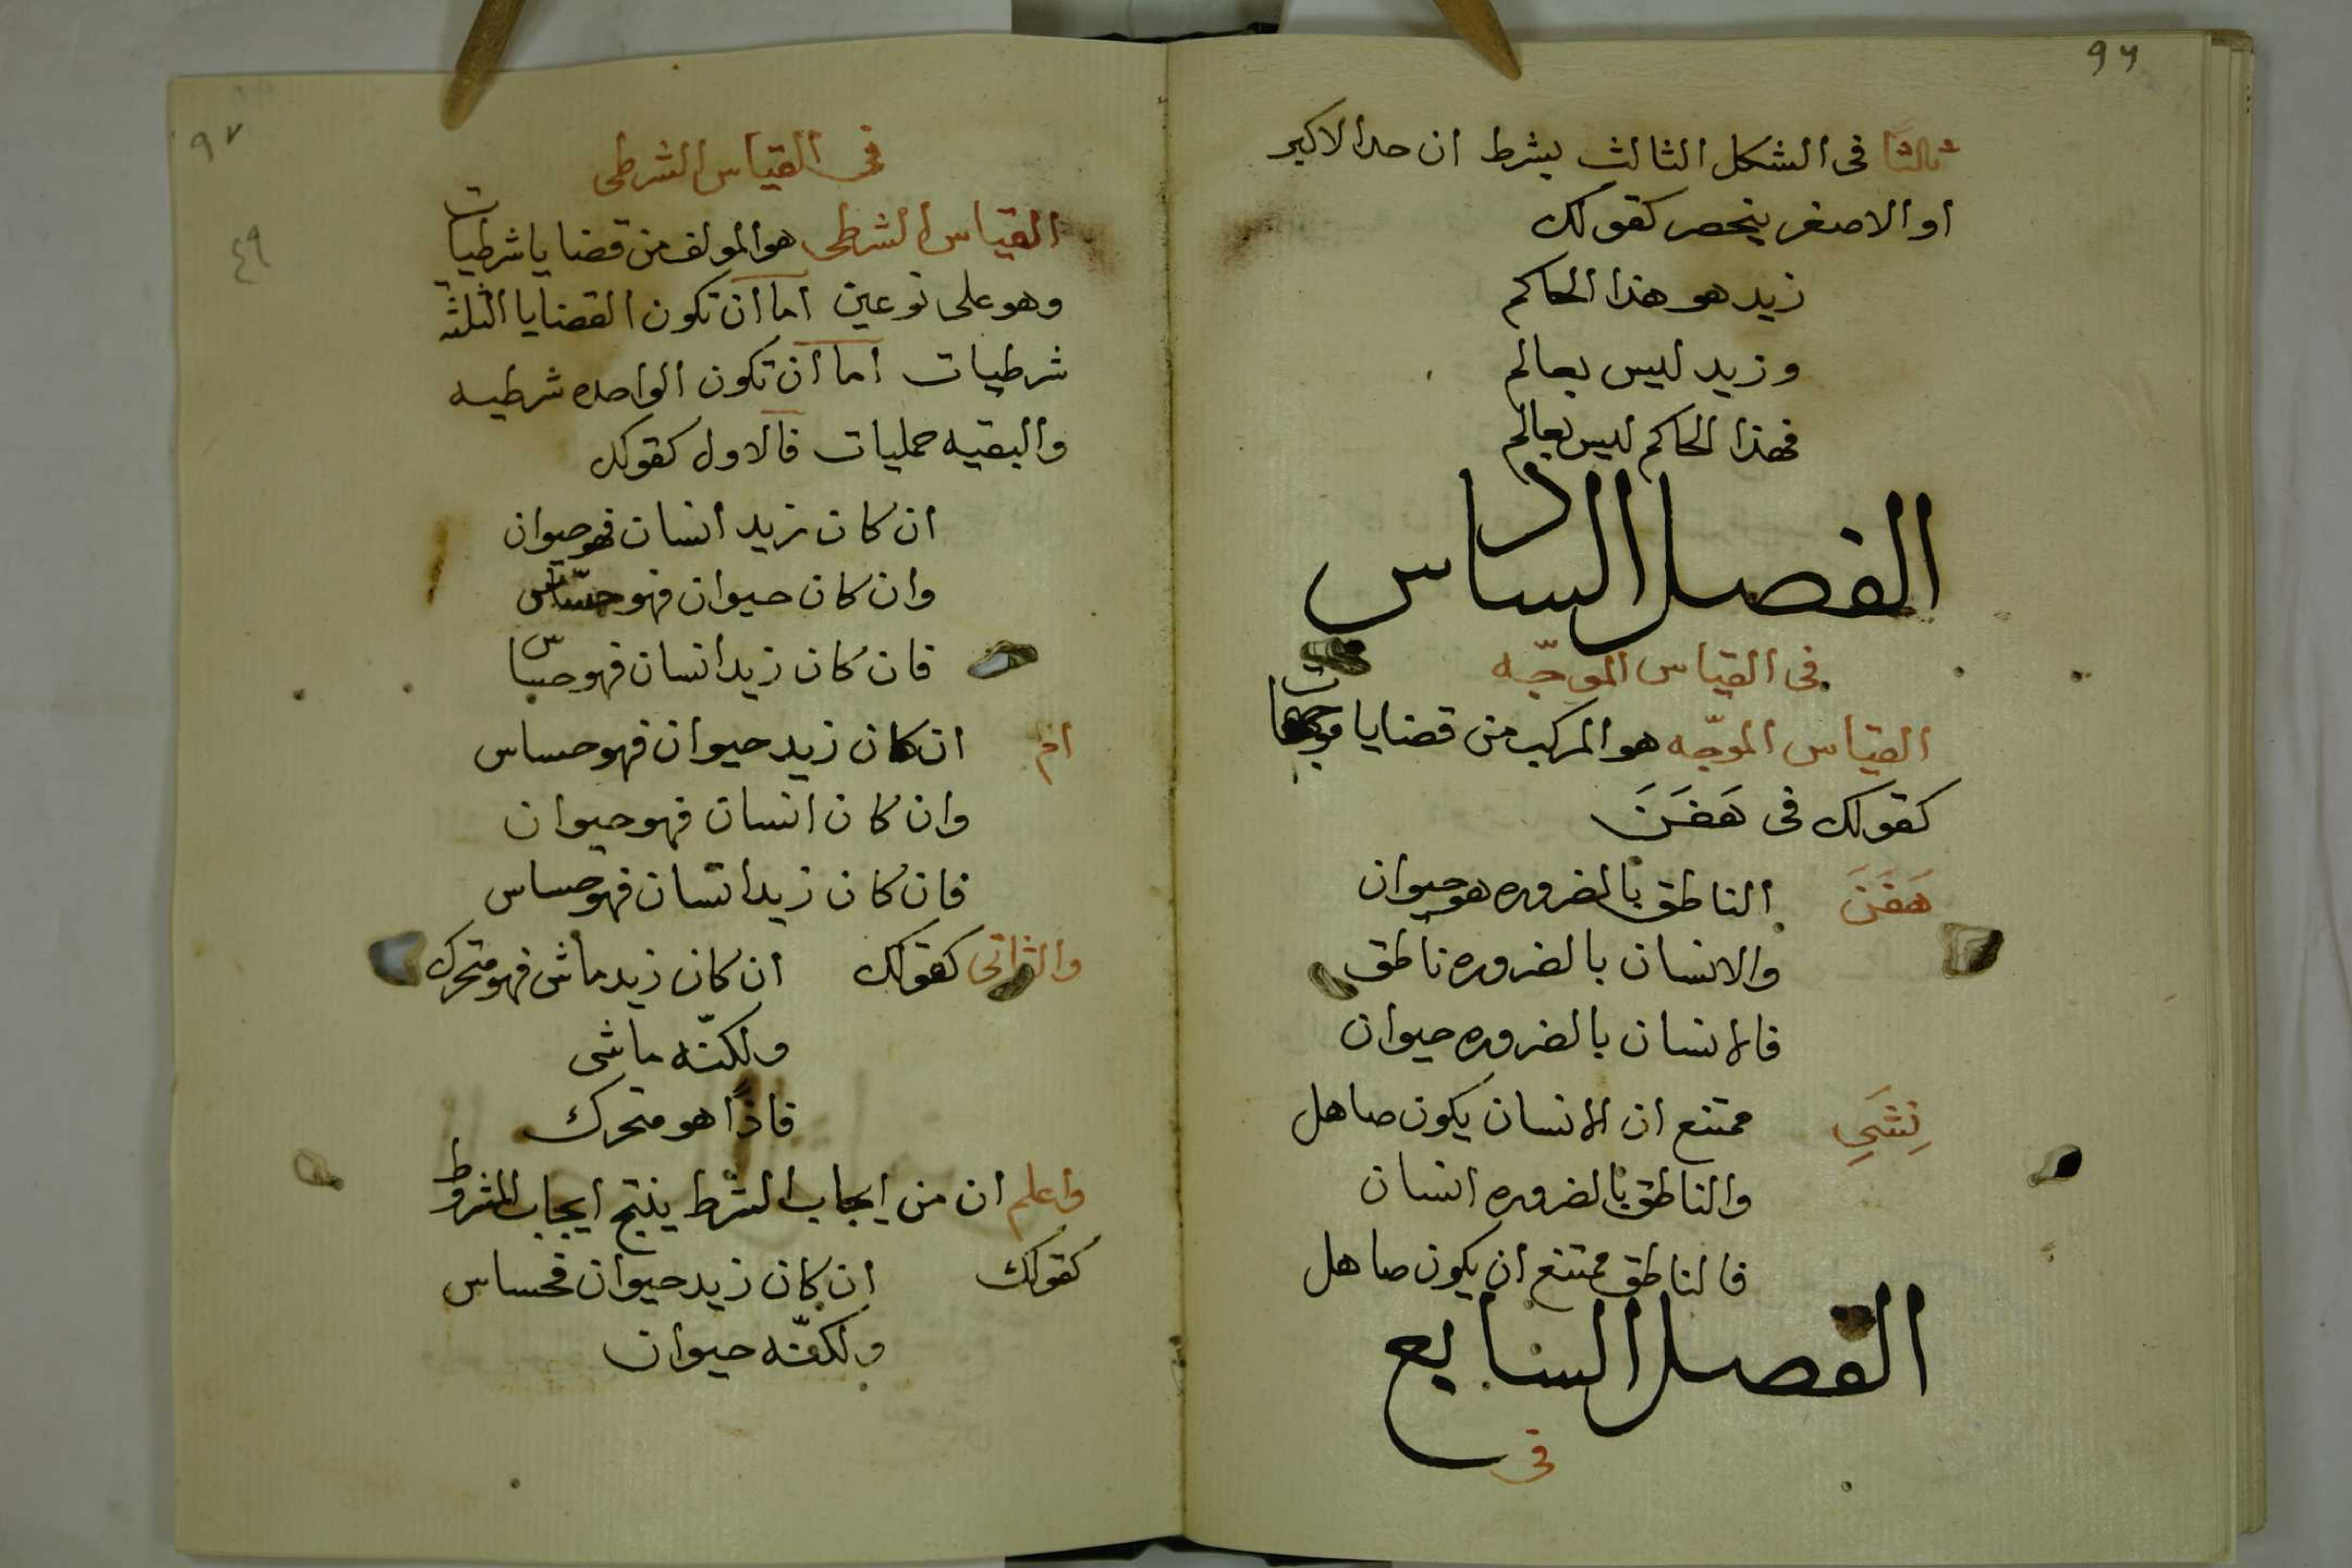 ٩٦
ثالثًا فى الشكل الثالث يشرط ان حدا الاكبر
او الاصغر ينحصر كقولك
زيد هو هذا الحاكم
وزيد ليس بعالم
فهذا الحاكم ليس بعالم
الفصل السادس
فى القياس الموجّه
القياس الموجّه هو المركب من قضايا موجهات
كقولك فى هَفَنَ
هَفَنَ الناطق بالضروره هو حيوان
والانسان بالضروره ناطق
فالانسان بالضروره حيوان
نِشَحِ ممتنع ان الانسان يكون صاهل
والناطق بالضروره انسان
فالناطق ممتنع ان يكون صاهل
الفصل السابع
فى
٩٧
٤٩
فى القياس الشرطى
القياس الشرطى هو المولف من قضايا شرطيات
وهو على نوعين اما ان تكون القضايا الثلثه
شرطيات اما ان تكون الواحده شرطيه
والبقيه حمليات فالاول كقولك
ان كان زيد انسان فهو حيوان
وان كان حيوان فهو حسّاس
فان كان زيد انسان فهو حساس
ام ان كان زيد حيوان فهو حساس
وان كان انسان فهو حيوان
فان كان زيد انسان فهو حساس
والثانى كقولك ان كان زيد ماش فهو متحرك
ولكنّه ماشى
فاذًا هو متحرك
واعلم ان من ايجاب الشرط ينتج ايجاب المشروط
كقولك ان كان زيد حيوان فحساس
ولكنّه حيوان